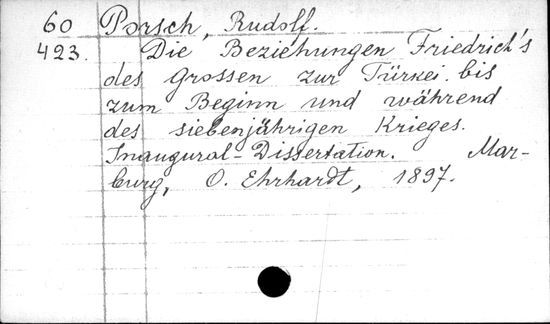 60 Porsch, Rudolf.
423. Die Beziehungen Friedrich's
des Grossen zur Türkei bis
zum Beginn und während
des siebenjährigen Krieges.
Inaugural-Dissertation. Mar-
burg, O. Ehrhardt, 1897.